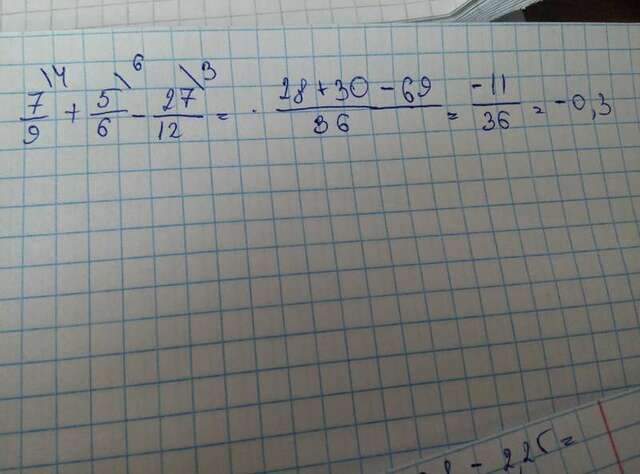 7/9 \4 + 5/6 \6 - 27/12 \3 = 28+30-69/36 = -11/36 = -0,3
8 - 2,25 =